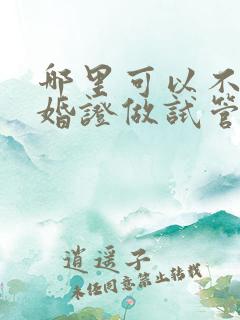 哪里可以不
婚證做試管
逍遥子
未经同意禁止转载